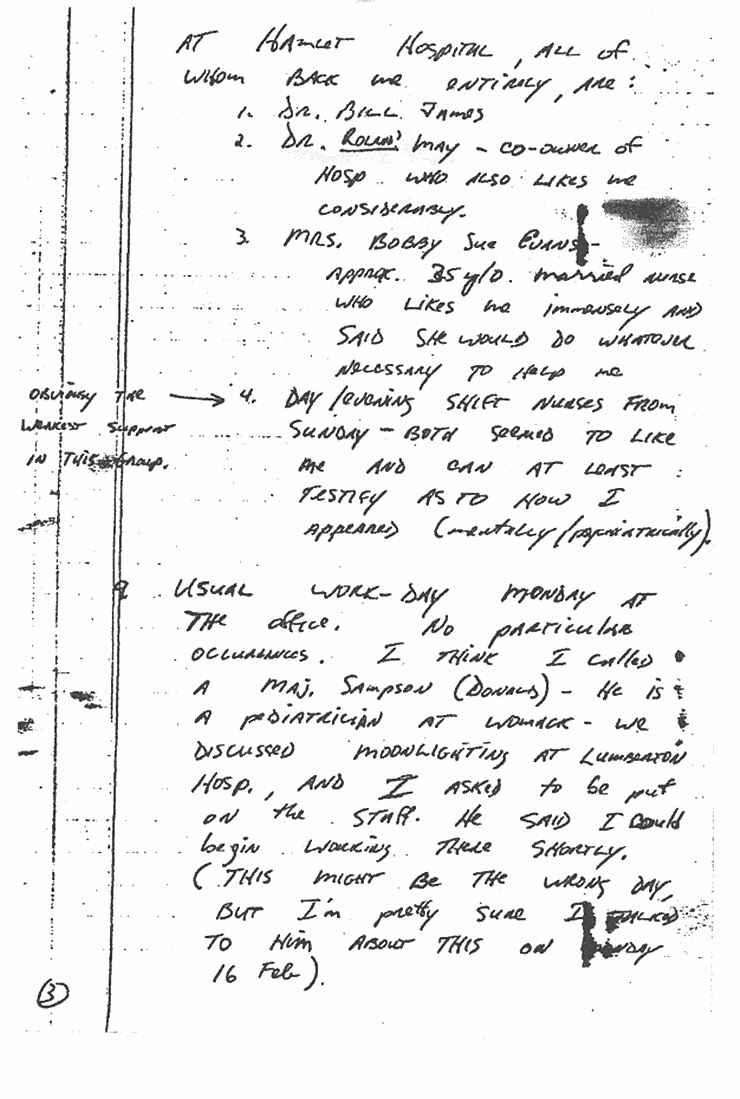 AT HAMLET HOSPITAL, ALL OF
WHOM BACK me ENTIRELY, ARE:
1. DR. BILL JAMES
2. DR. MAY - CO-OWNER OF
HOSP WHO ALSO LIKES me
CONSIDERABLY.
3. MRS. BOBBY SUE EVANS -
APPROX. 35 y/o. married NURSE
WHO LIKES me immensely AND
SAID SHE WOULD DO WHATEVER
NECESSARY TO Help me
OBVIOUSLY THE → 4. DAY/evening SHIFT NURSES FROM
WEAKEST SUPPORT SUNDAY - BOTH seemed TO LIKE
IN THIS GROUP. me AND CAN AT LEAST
TESTIFY AS TO HOW I
APPEARED (mentally/psychiatrically).
9. USUAL WORK-DAY MONDAY AT
THE office. NO PARTICULAR
OCCURENCES. I THINK I called
A MAJ. SAMPSON (DONALD) - He is
A PEDIATRICIAN AT WOMACK - we
DISCUSSED MOONLIGHTING AT LUMBERTON
HOSP., AND I ASKED to be put
ON the STAFF. He SAID I could
begin WORKING THERE SHORTLY.
(THIS MIGHT BE THE WRONG DAY,
BUT I'm pretty SURE I TALKED
TO HIM ABOUT THIS ON MONDAY
16 Feb).
3